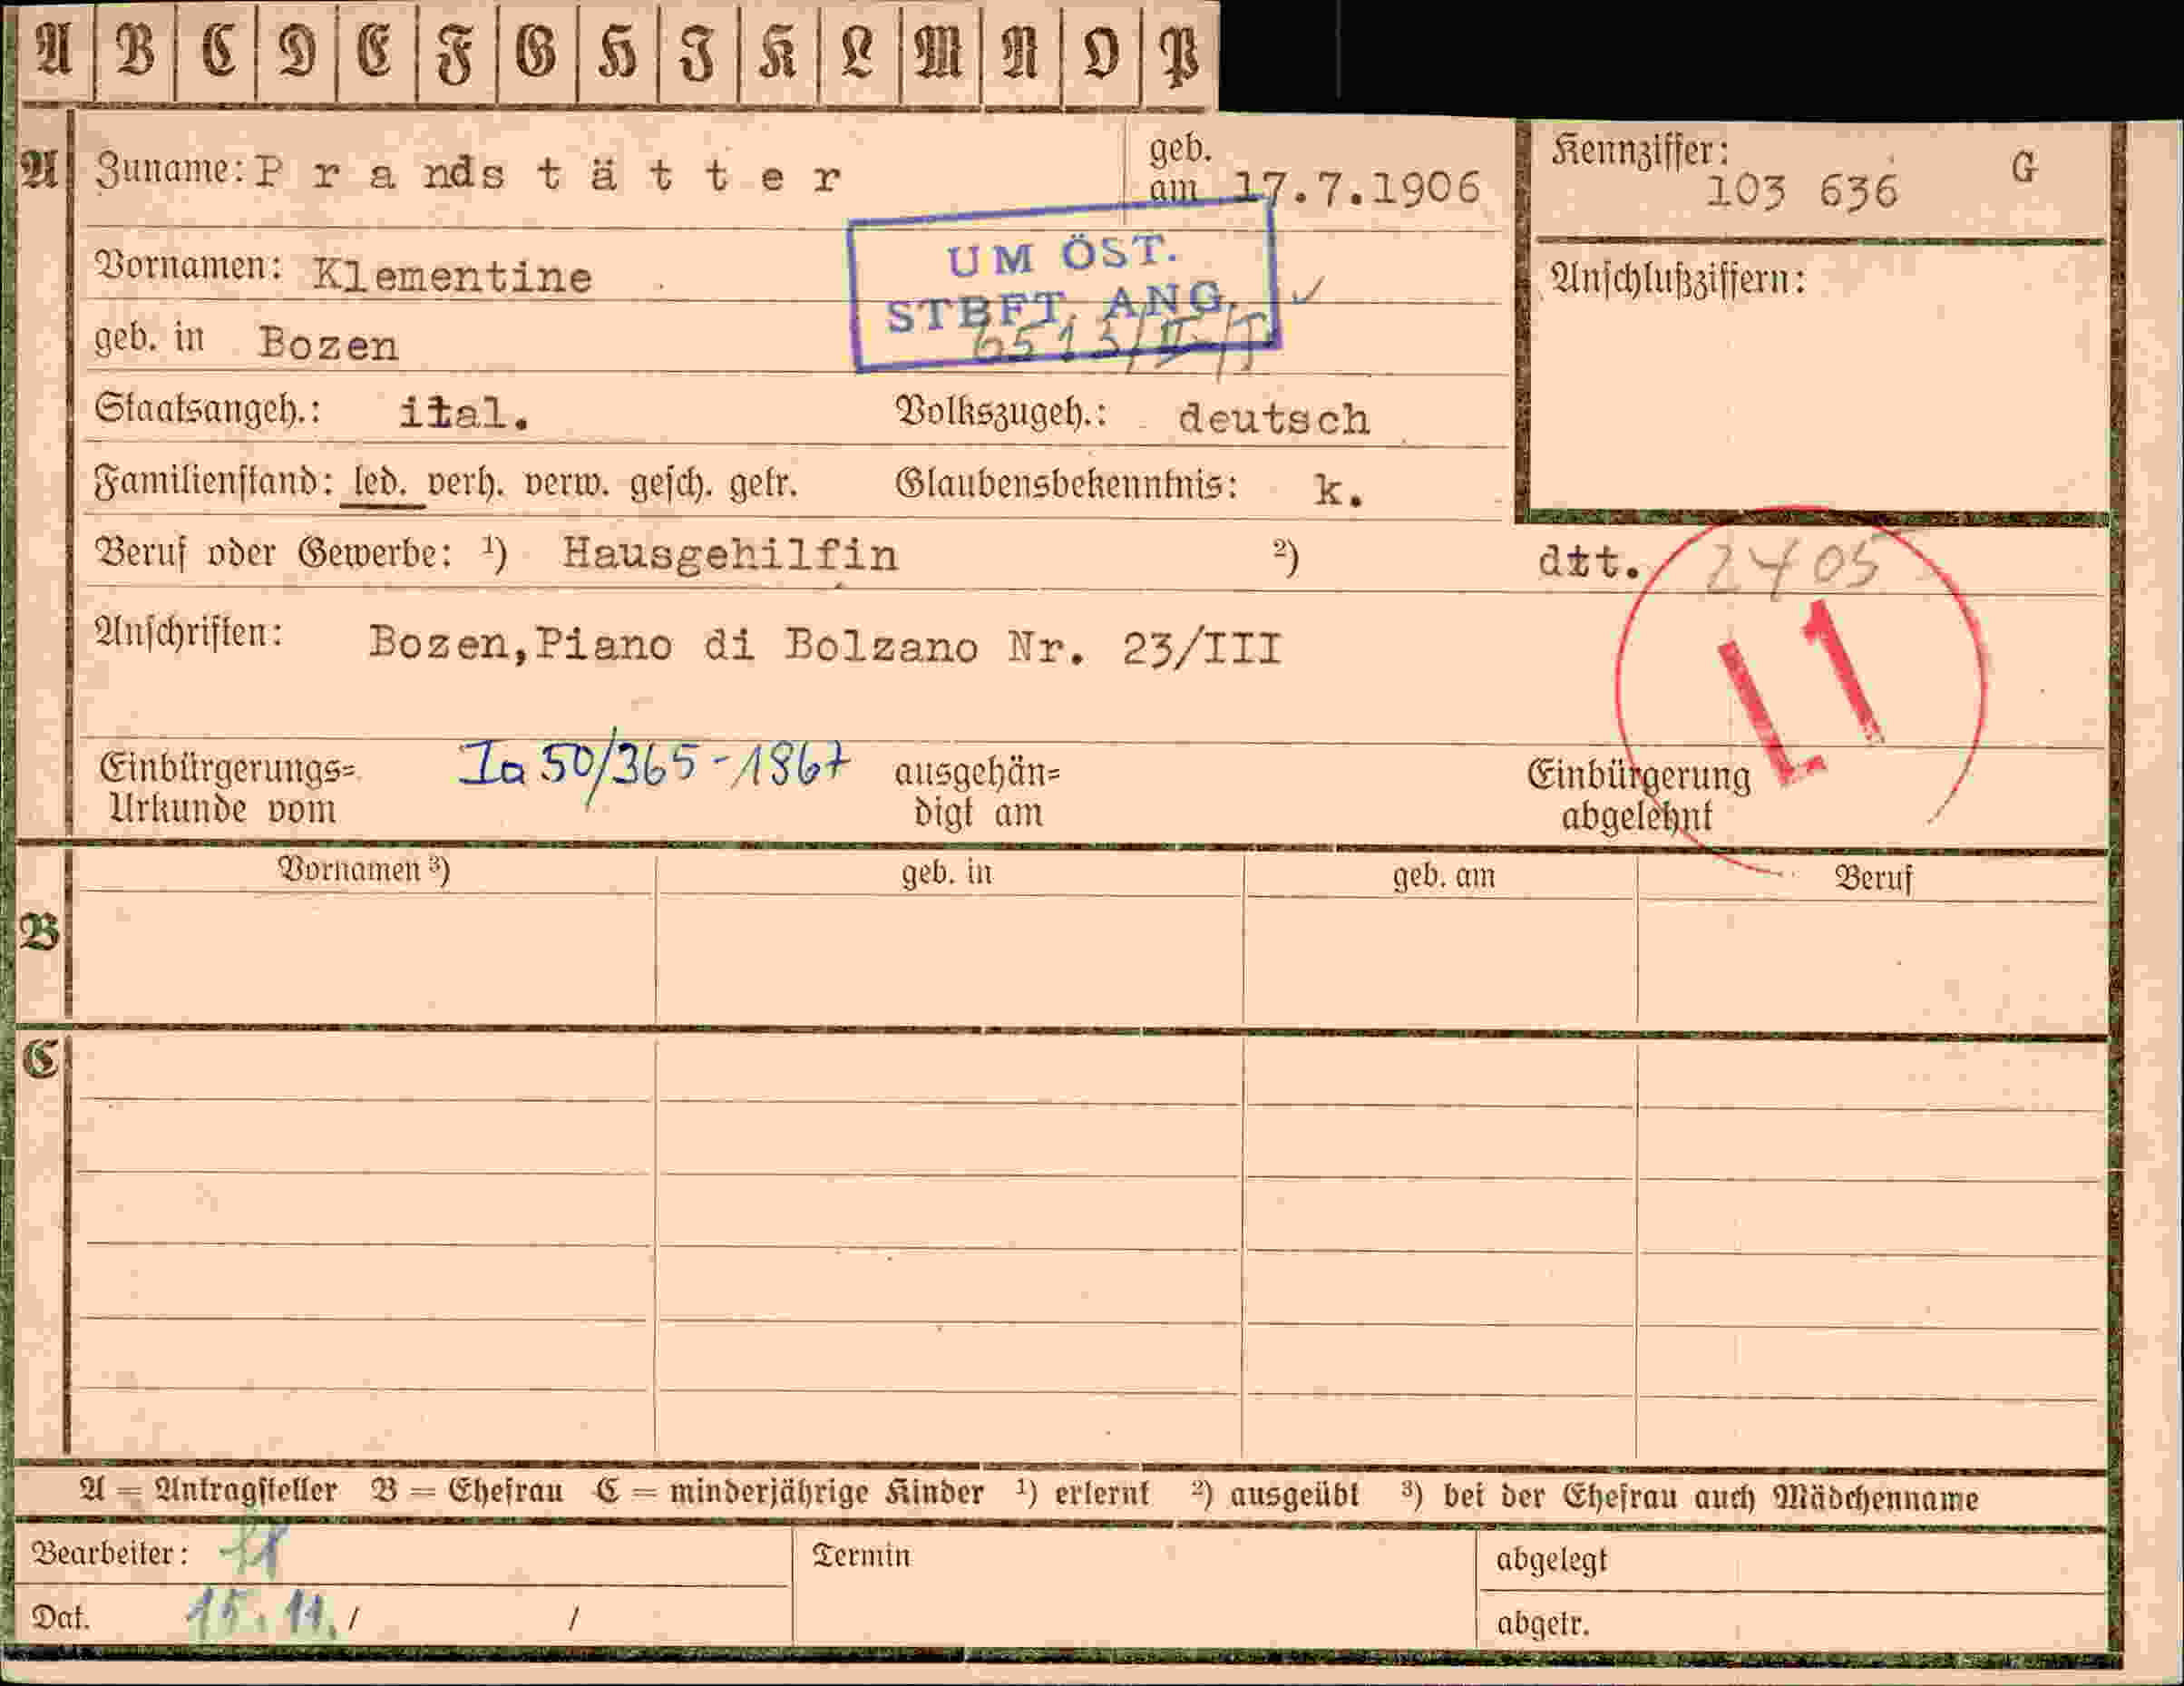 A B C D E F G H I K L M N O P
A Zuname: Prandstätter geb. am 17.7.1906 Kennziffer: 103 636 G
UM ÖST.
Vornamen: Klementine Anschlußziffern:
STBFT. ANG.
geb. in Bozen 6513/II/T
Staatsangeh.: ital. Volkszugeh.: deutsch
Familienstand: led. verh. verw. gesch. getr. Glaubensbekenntnis: k.
Beruf oder Gewerbe: ¹) Hausgehilfin ²) dtt. 2405
Anschriften: Bozen,Piano di Bolzano Nr. 23/III
L1
Einbürgerungs= Urkunde vom Ia 50/365-1867 ausgehän= digt am Einbürgerung abgelehnt
Vornamen ³) geb. in geb. am Beruf
B
C
A = Antragsteller B = Ehefrau C = minderjährige Kinder ¹) erlernt ²) ausgeübt ³) bei der Ehefrau auch Mädchenname
Bearbeiter: Termin abgelegt
Dat. 15.11./ / abgetr.